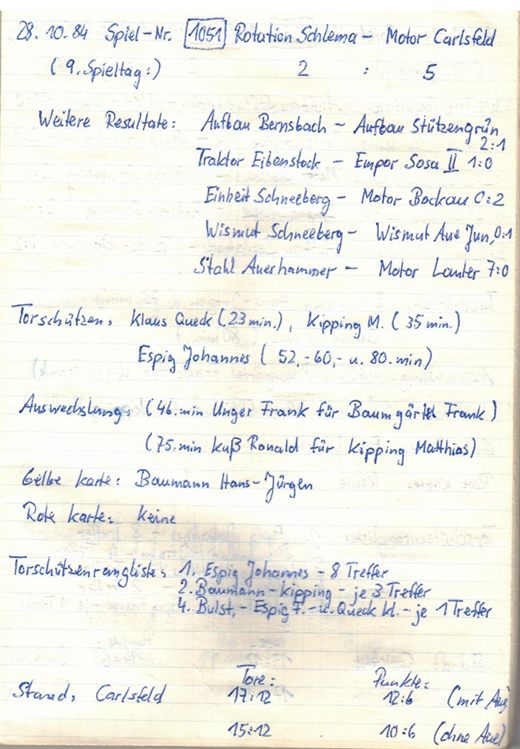 28.10.84 Spiel-Nr. 1051 Rotation Schlema - Motor Carlsfeld
(9. Spieltag:) 2 : 5
Weitere Resultate: Aufbau Bernsbach - Aufbau Stützengrün
2:1
Traktor Eibenstock - Empor Sosa II 1:0
Einheit Schneeberg - Motor Bockau 0:2
Wismut Schneeberg - Wismut Aue Jun. 0:1
Stahl Auerhammer - Motor Lauter 7:0
Torschützen: Klaus Queck (23 min.), Kipping M. (35 min.)
Espig Johannes (52,-60,- u. 80. min)
Auswechslung: (46. min Unger Frank für Baumgärtel Frank)
(75. min Kuß Ronald für Kipping Matthias)
Gelbe Karte: Baumann Hans-Jürgen
Rote Karte: Keine
Torschützenrangliste: 1. Espig Johannes - 8 Treffer
2. Baumann - Kipping - je 3 Treffer
4. Bulst, - Espig F. - u. Queck Kl. - je 1 Treffer
Tore: Punkte:
Stand: Carlsfeld 17:12 12:6 (mit Aue)
15:12 10:6 (ohne Aue)